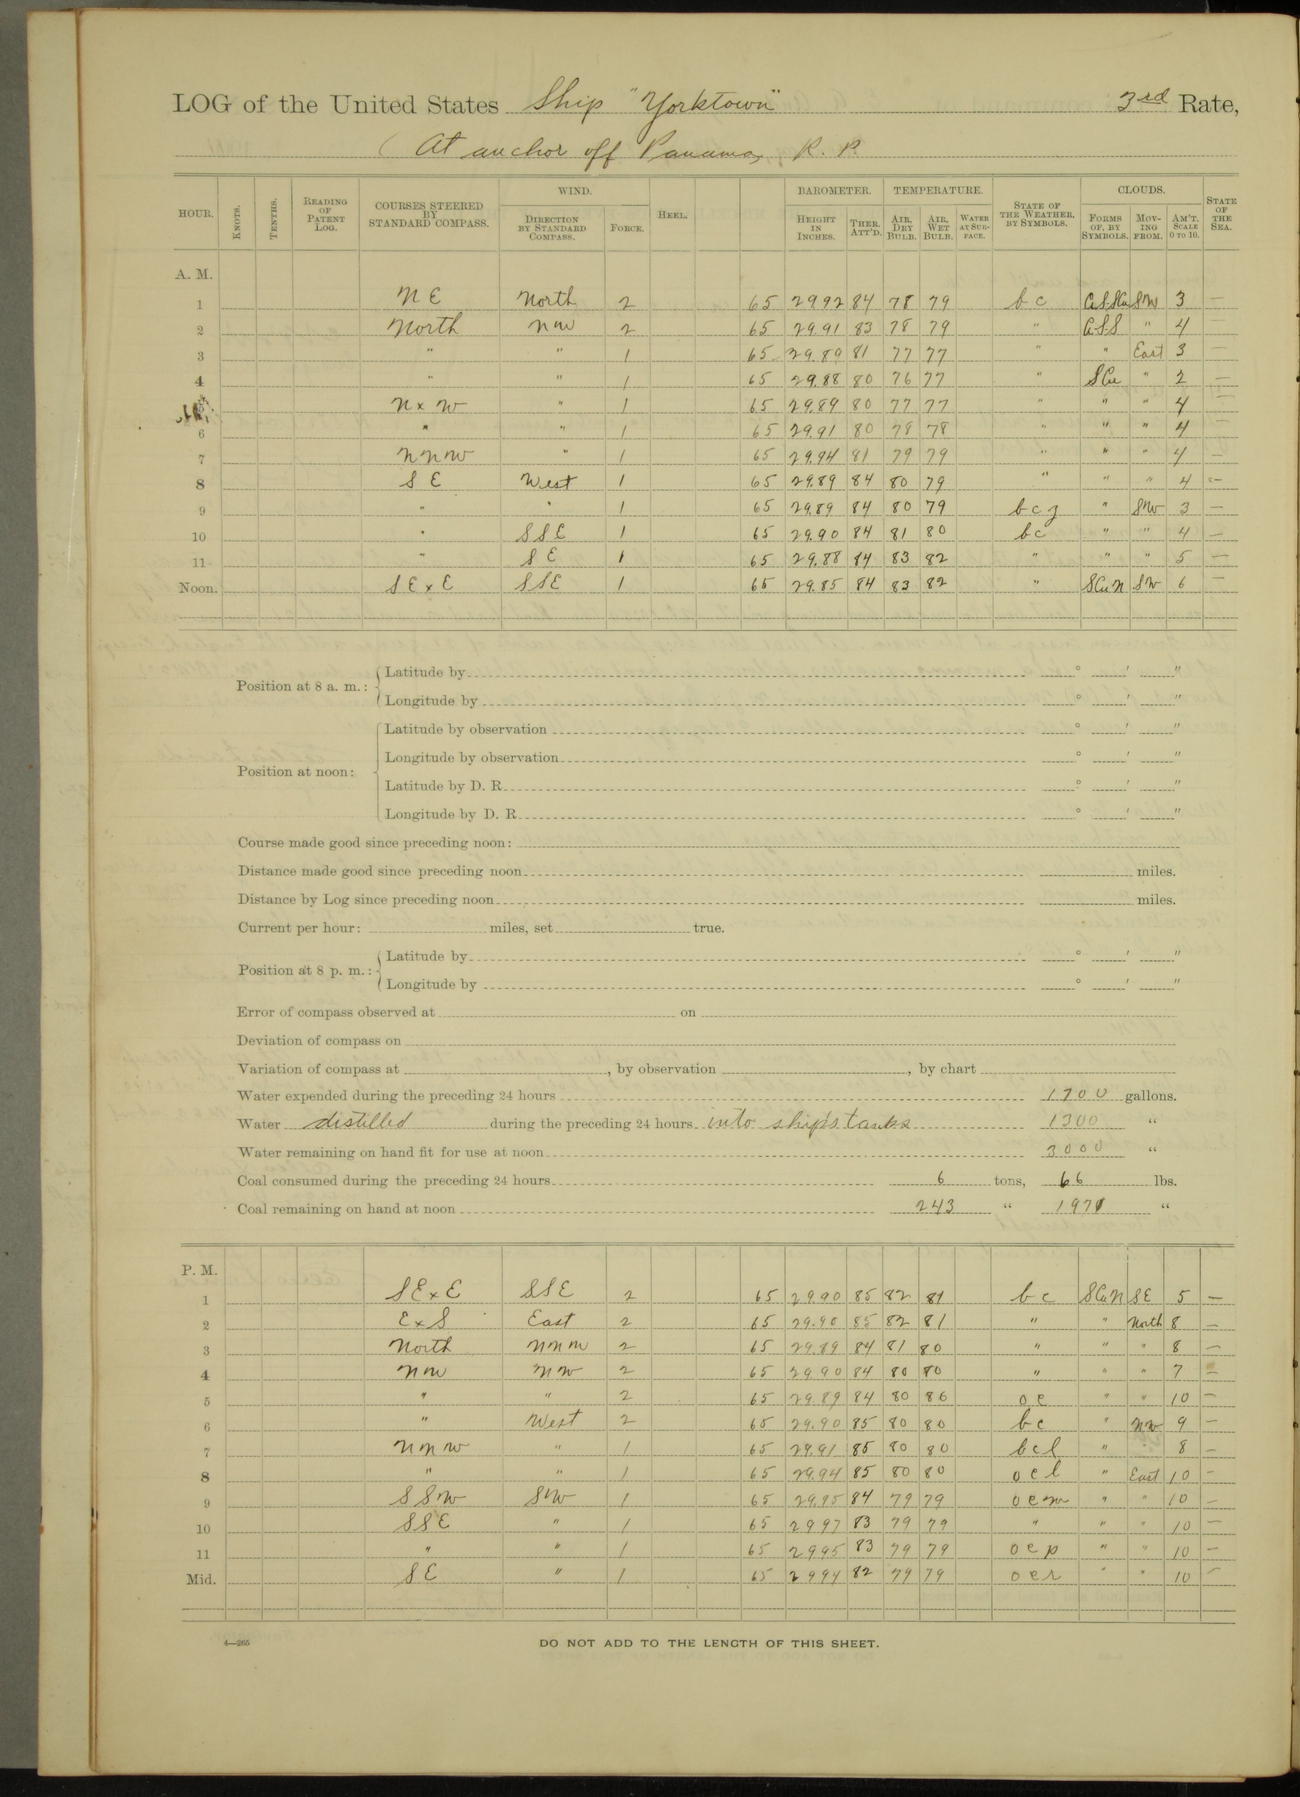 LOG of the United States Ship "Yorktown" 3rd Rate,
At anchor off Panama, R. P.
HOUR. KNOTS. TENTHS. READING OF PATENT LOG. COURSES STEERED BY STANDARD COMPASS. WIND. DIRECTION BY STANDARD COMPASS. FORCE. HEEL. BAROMETER. HEIGHT IN INCHES. THER. ATT'D. TEMPERATURE. AIR, DRY BULB. AIR, WET BULB. WATER AT SURFACE. STATE OF THE WEATHER, BY SYMBOLS. CLOUDS. FORMS OF, BY SYMBOLS. MOVING FROM. AM'T. SCALE 0 TO 10. STATE OF THE SEA.
A. M.
1 N E North 2 65 29 92 84 78 79 b c SW 3 —
2 North NW 2 65 29.91 83 78 79 " " 4 —
3 " " 1 65 29.89 81 77 77 " " East 3 —
4 " " 1 65 29.88 80 76 77 " SCu " 2 —
N x W " 1 65 29.89 80 77 77 " " " 4 —
6 " " 1 65 29.91 80 78 78 " " " 4 —
7 NNW " 1 65 29.94 81 79 79 " " " 4 —
8 S E West 1 65 29.89 84 80 79 " " " 4 —
9 " " 1 65 29.89 84 80 79 b c g " SW 3 —
10 " SSE 1 65 29.90 84 81 80 bc " " 4 —
11 " S E 1 65 29.88 84 83 82 " " " 5 —
Noon. S E x E SSE 1 65 29.85 84 83 82 " SCuN SW 6 —
Position at 8 a. m.: Latitude by ° ' "
Longitude by ° ' "
Position at noon: Latitude by observation ° ' "
Longitude by observation ° ' "
Latitude by D. R. ° ' "
Longitude by D. R. ° ' "
Course made good since preceding noon:
Distance made good since preceding noon miles.
Distance by Log since preceding noon miles.
Current per hour: miles, set true.
Position at 8 p. m.: Latitude by ° ' "
Longitude by ° ' "
Error of compass observed at on
Deviation of compass on
Variation of compass at , by observation , by chart
Water expended during the preceding 24 hours 1700 gallons.
Water distilled during the preceding 24 hours into ship's tanks 1300 "
Water remaining on hand fit for use at noon 3000 "
Coal consumed during the preceding 24 hours 6 tons, 66 lbs.
Coal remaining on hand at noon 243 " 1971 "
P. M.
1 SE x E SSE 2 65 29.90 85 82 81 b c SCuN SE 5 —
2 E x S East 2 65 29.90 85 82 81 " " North 8 —
3 North NNW 2 65 29.89 84 81 80 " " " 8 —
4 NW NW 2 65 29.90 84 80 80 " " " 7 —
5 " " 2 65 29.89 84 80 86 o c " " 10 —
6 " West 2 65 29.90 85 80 80 bc " NW 9 —
7 NNW " 1 65 29.91 85 80 80 b c l " " 8 —
8 " " 1 65 29.94 85 80 80 o c l " East 10 —
9 SSW SW 1 65 29.95 84 79 79 o c m " " 10 —
10 SSE " 1 65 29 97 83 79 79 " " " 10 —
11 " " 1 65 29 95 83 79 79 o c p " " 10 —
Mid. S E " 1 65 29 94 82 79 79 o c r " " 10 —
4—265
DO NOT ADD TO THE LENGTH OF THIS SHEET.